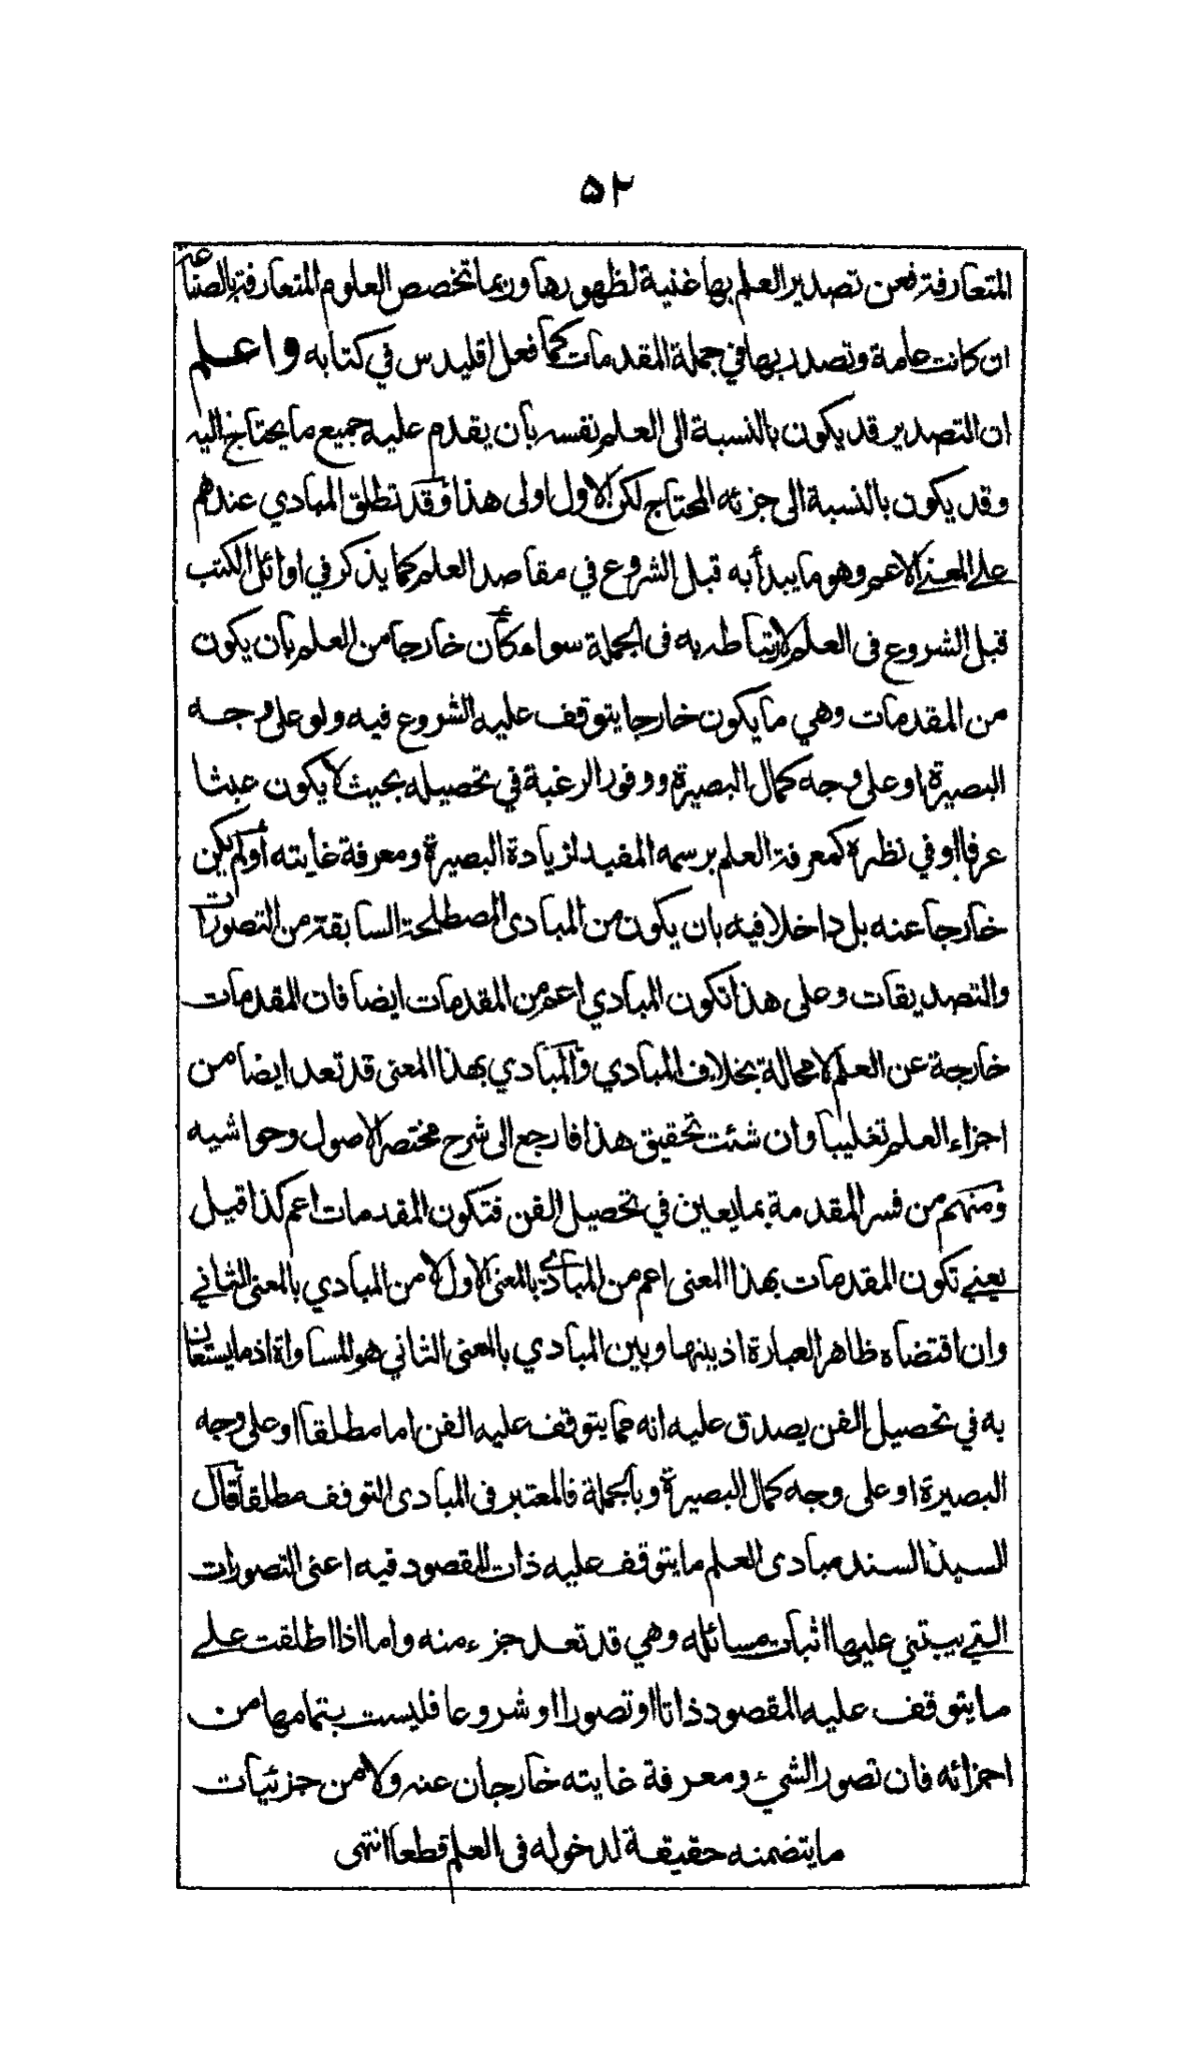 ٥٢
المتعارفة فعن تصدير العلم بها غنية لظهورها وربما تخصص العلوم المتعارفة بالصناعة
ان كانت عامة وتصدر بها في جملة المقدمات كما فعل اقليدس في كتابه واعلم
ان التصدير قد يكون بالنسبة الى العلم نفسه بان يقدم عليه جميع ما يحتاج اليه
وقد يكون بالنسبة الى جزئه المحتاج لكن الاول اولى هذا وقد تطلق المبادي عندهم
على المعنى الاعم وهو ما يبدأ به قبل الشروع في مقاصد العلم كما يذكر في اوائل الكتب
قبل الشروع فى العلم لارتباطه به فى الجملة سواء كان خارجا من العلم بان يكون
من المقدمات وهي ما يكون خارجا يتوقف عليه الشروع فيه ولو على وجه
البصيرة او على وجه كمال البصيرة ووفور الرغبة في تحصيله بحيث لا يكون عبثا
عرفا او في نظره كمعرفة العلم برسمه المفيد لزيادة البصيرة ومعرفة غايته او لم يكن
خارجا عنه بل داخلا فيه بان يكون من المبادى المصطلحة السابقة من التصورات
والتصديقات وعلى هذا تكون المبادي اعم من المقدمات ايضا فان المقدمات
خارجة عن العلم لا محالة بخلاف المبادي والمبادي بهذا المعنى قد تعد ايضا من
اجزاء العلم تغليبا وان شئت تحقيق هذا فارجع الى شرح مختصر الاصول وحواشيه
ومنهم من فسر المقدمة بما يعين في تحصيل الفن فتكون المقدمات اعم كذا قيل
يعني تكون المقدمات بهذا المعنى اعم من المبادي بالمعنى الاول لا من المبادي بالمعنى الثاني
وان اقتضاه ظاهر العبارة اذ بينها وبين المبادي بالمعنى الثاني هو المساواة اذ ما يستعان
به في تحصيل الفن يصدق عليه انه مما يتوقف عليه الفن اما مطلقا او على وجه
البصيرة او على وجه كمال البصيرة وبالجملة فالمعتبر فى المبادى التوقف مطلقا قال
السيد السند مبادى العلم ما يتوقف عليه ذات المقصود فيه اعنى التصورات
التي يبتني عليها اثبات مسائله وهي قد تعد جزء منه واما اذا اطلقت على
ما يتوقف عليه المقصود ذاتا او تصورا او شروعا فليست بتمامها من
اجزائه فان تصور الشيء ومعرفة غايته خارجان عنه ولا من جزئيات
ما يتضمنه حقيقة لدخوله فى العلم قطعا انتهى